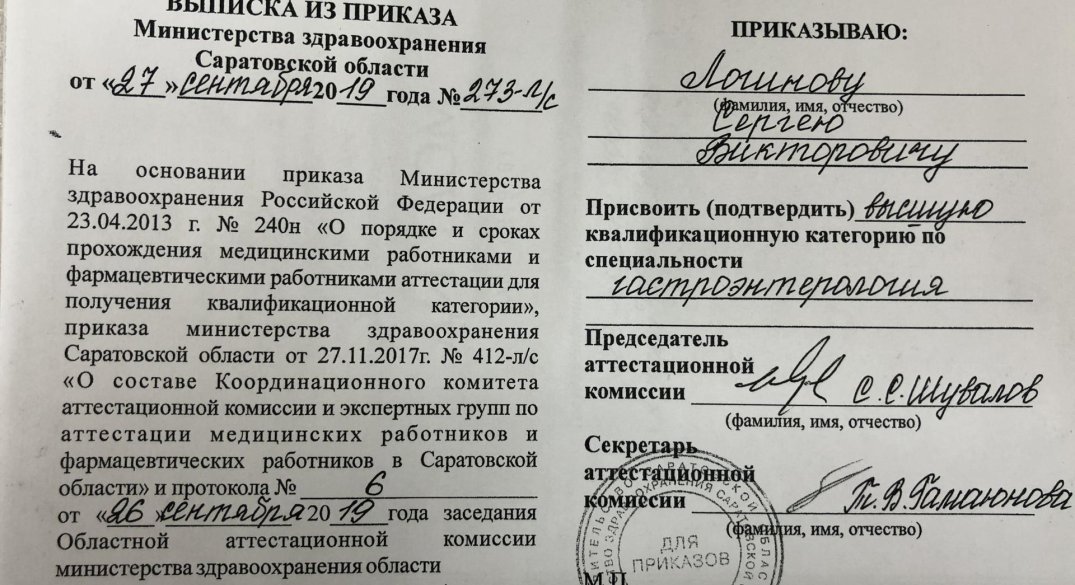 ВЫПИСКА ИЗ ПРИКАЗА
Министерства здравоохранения
Саратовской области
от «27»сентября2019года №273-л/с
На основании приказа Министерства
здравоохранения Российской Федерации от
23.04.2013 г. № 240н «О порядке и сроках
прохождения медицинскими работниками и
фармацевтическими работниками аттестации для
получения квалификационной категории»,
приказа министерства здравоохранения
Саратовской области от 27.11.2017г. № 412-л/с
«О составе Координационного комитета
аттестационной комиссии и экспертных групп по
аттестации медицинских работников и
фармацевтических работников в Саратовской
области» и протокола № 6
от «26»сентября2019года заседания
Областной аттестационной комиссии
министерства здравоохранения области
ПРИКАЗЫВАЮ:
Логинову
(фамилия, имя, отчество)
Сергею
Викторовичу
Присвоить (подтвердить) высшую
квалификационную категорию по
специальности
гастроэнтерология
Председатель
аттестационной
комиссии С.С.Шувалов
(фамилия, имя, отчество)
Секретарь
аттестационной
комиссии Т.В.Гамаюнова
(фамилия, имя, отчество)
М.П.
ДЛЯ
ПРИКАЗОВ